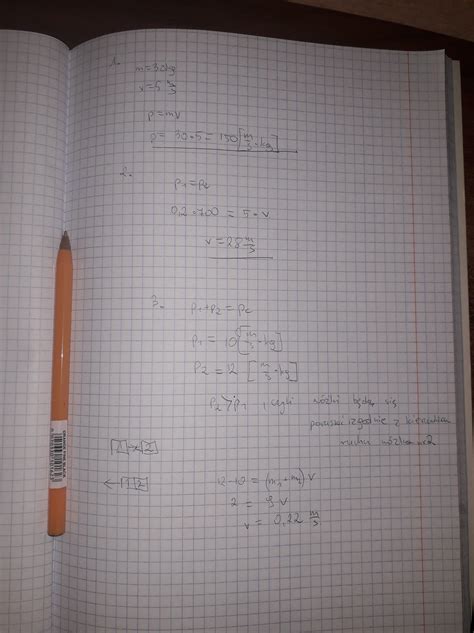 1.
m=30kg
v=5 m/s
p=mv
p= 30·5=150[m/s·kg]
2.
p1=p2
0,2·700 = 5·v
v=28 m/s
3. p1+p2=pc
p1= 10[m/s·kg]
p2=12 [m/s·kg]
p2>p1, czyli wózki będą się
poruszać zgodnie z kierunkiem
ruchu wózka nr 2
1 → 2
← 1 2
12-10=(m1+m2)v
2 = 9v
v= 0,22 m/s